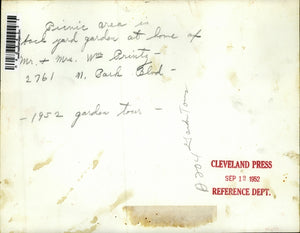 Picnic area is
back yard garden at home of
Mr. & Mrs. Wm Printz -
2761 N. Park Blvd -
- 1952 garden tour -
CLEVELAND PRESS
SEP 1952
REFERENCE DEPT.